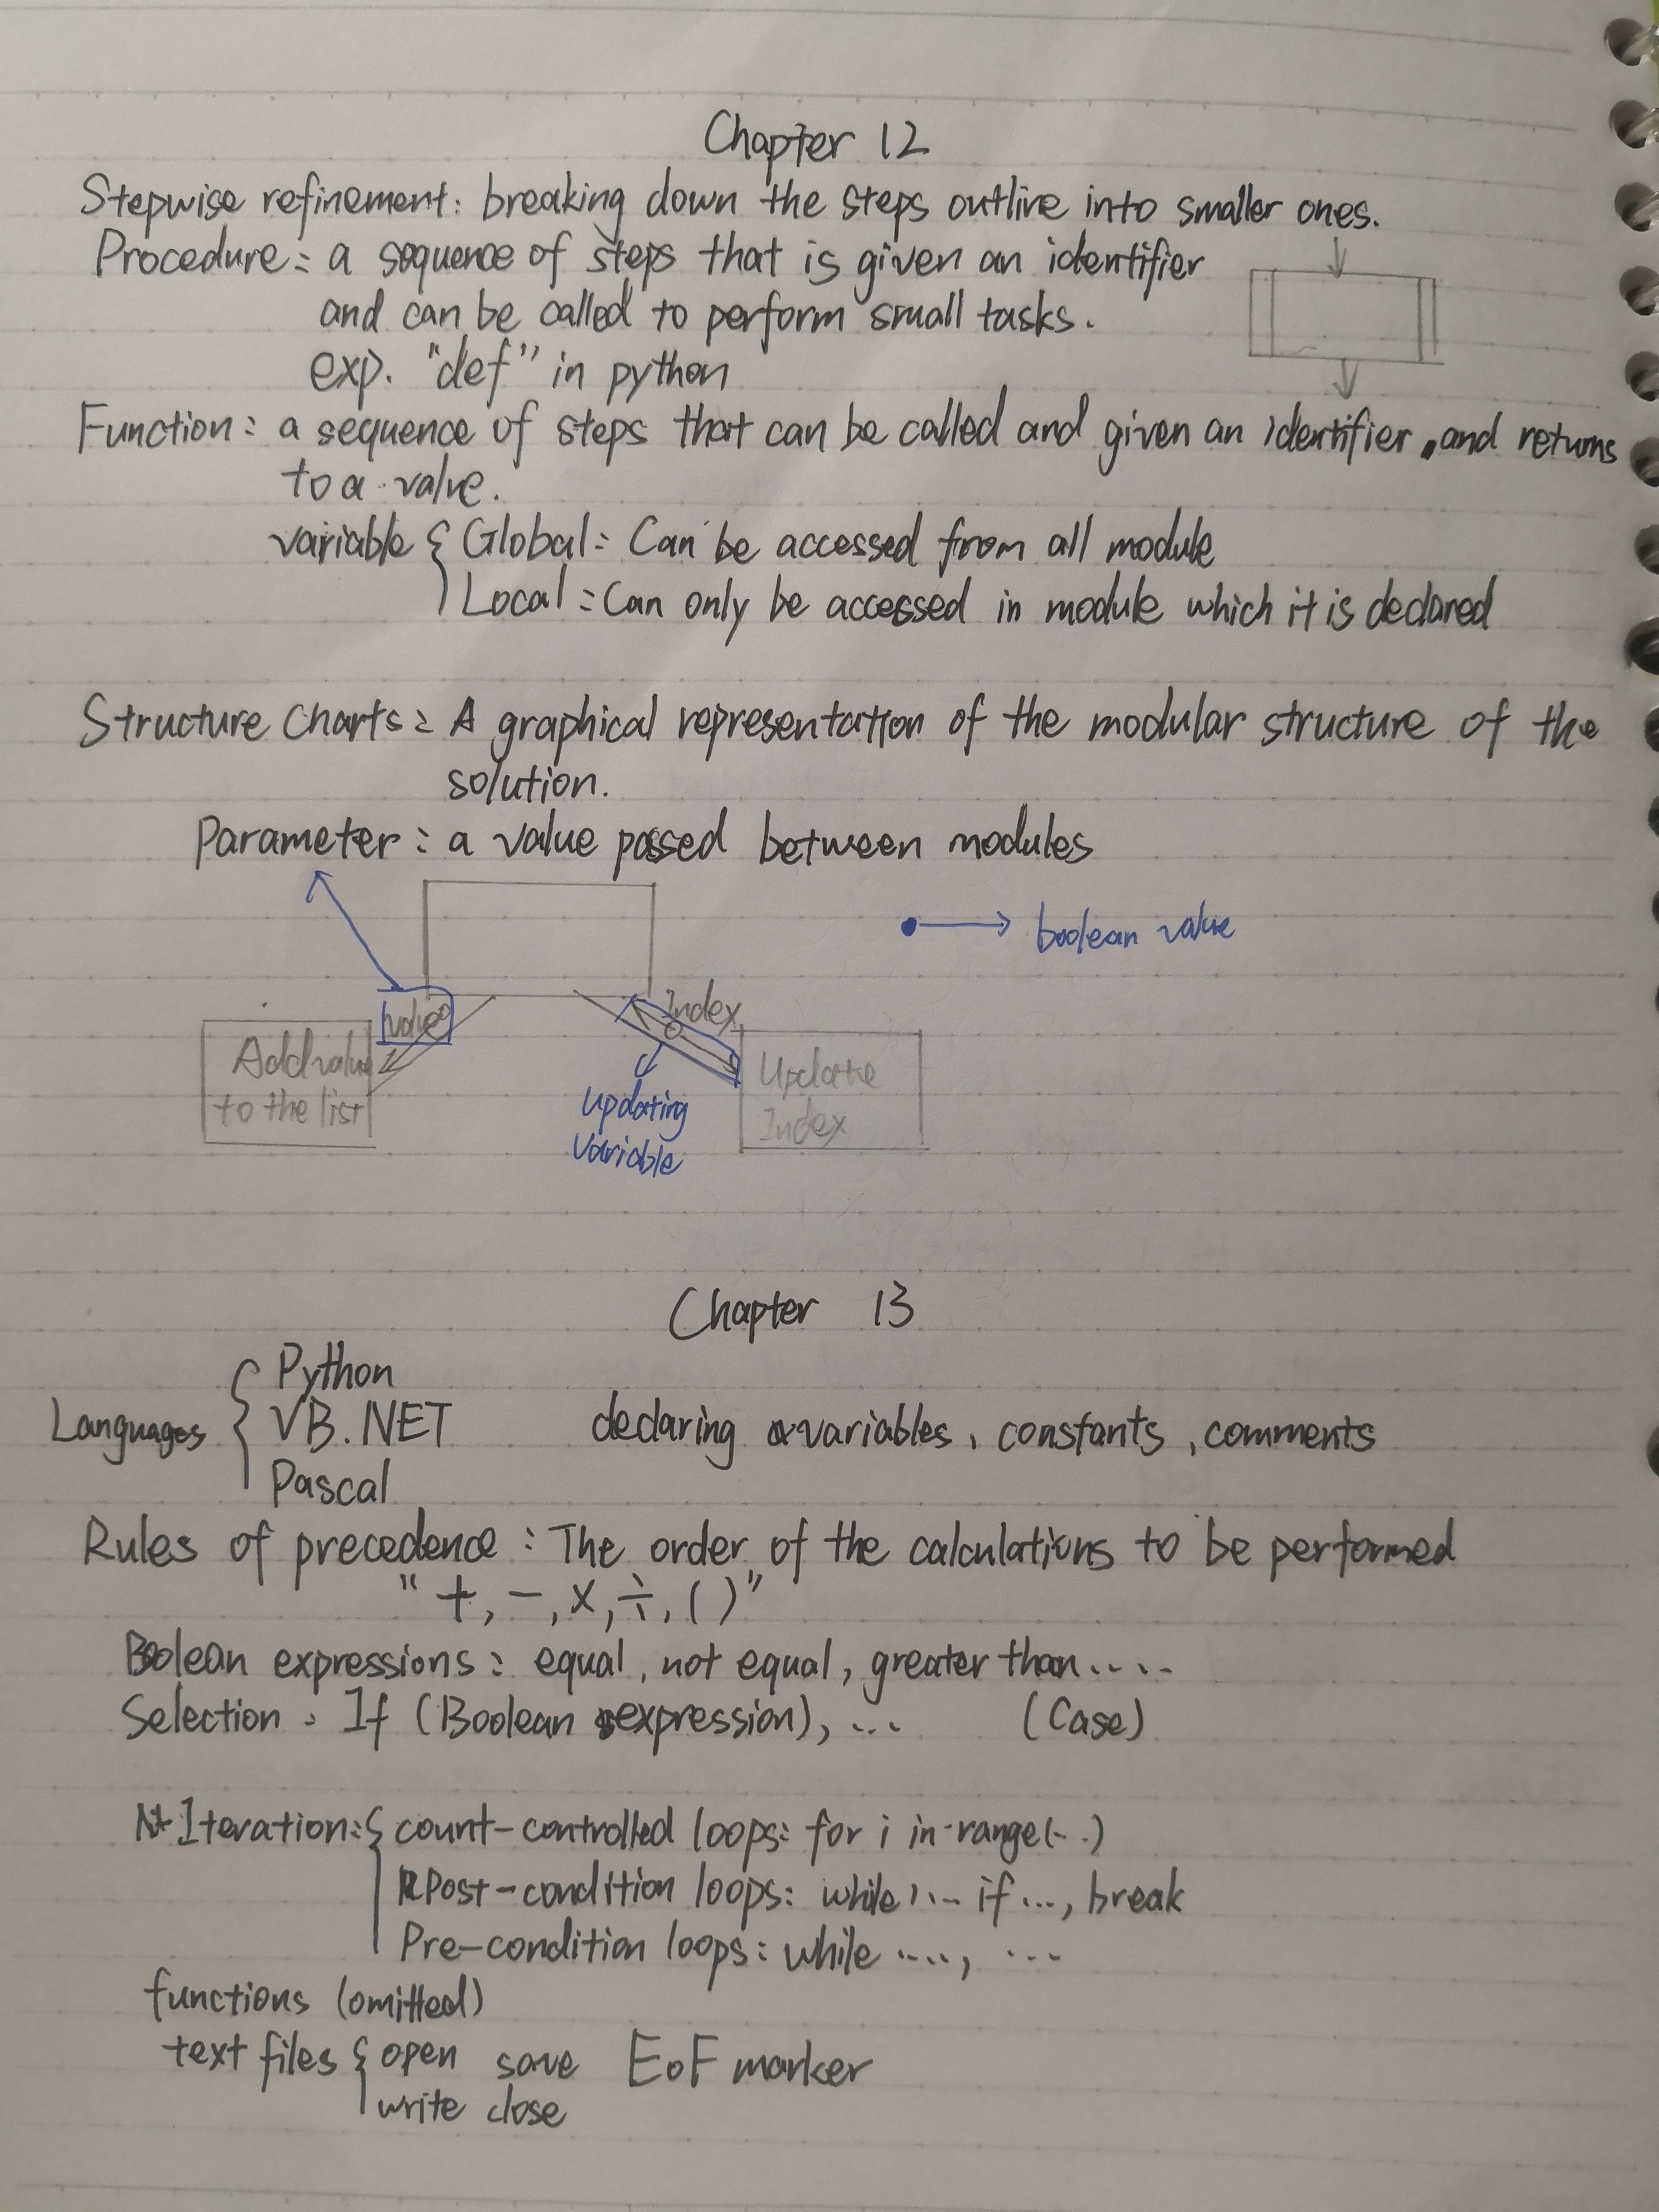 Chapter 12
Stepwise refinement: breaking down the steps outline into smaller ones.
Procedure: a sequence of steps that is given an identifier
and can be called to perform small tasks.
exp. "def" in python
Function: a sequence of steps that can be called and given an identifier, and returns
to a value.
variable { Global: Can be accessed from all module
Local: Can only be accessed in module which it is declared
Structure Charts: A graphical representation of the modular structure of the
solution.
Parameter: a value passed between modules
boolean value
value
Index
Add value
to the list
Update
Index
updating
variable
Chapter 13
Languages { Python
VB.NET declaring variables, constants, comments
Pascal
Rules of precedence: The order of the calculations to be performed
"+, -, ×, ÷, ( )"
Boolean expressions: equal, not equal, greater than.....
Selection: If (Boolean expression), ... (Case)
Iteration: { count-controlled loops: for i in range(...)
Post-condition loops: while ... if ..., break
Pre-condition loops: while ...., ...
functions (omitted)
text files { open save EoF marker
write close